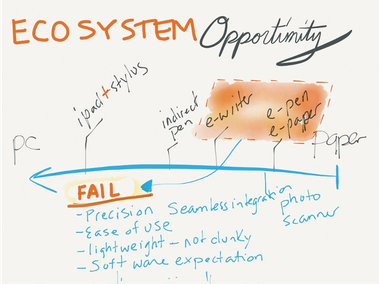 ECOSYSTEM Opportunity
ipad + stylus
indirect pen
e-writer
e-pen
e-paper
pc
paper
FAIL
- Precision Seamless integration
photo scanner
- Ease of use
- lightweight - not clunky
- Software expectation